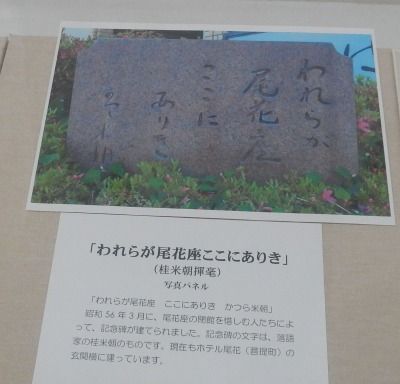 われらが
尾花座
ここに
ありき
「われらが尾花座ここにありき」
（桂米朝揮毫）
写真パネル
「われらが尾花座　ここにありき　かつら米朝」
昭和 56 年 3 月に、尾花座の閉館を惜しむ人たちによ
って、記念碑が建てられました。記念碑の文字は、落語
家の桂米朝のものです。現在もホテル尾花（菩提町）の
玄関横に建っています。